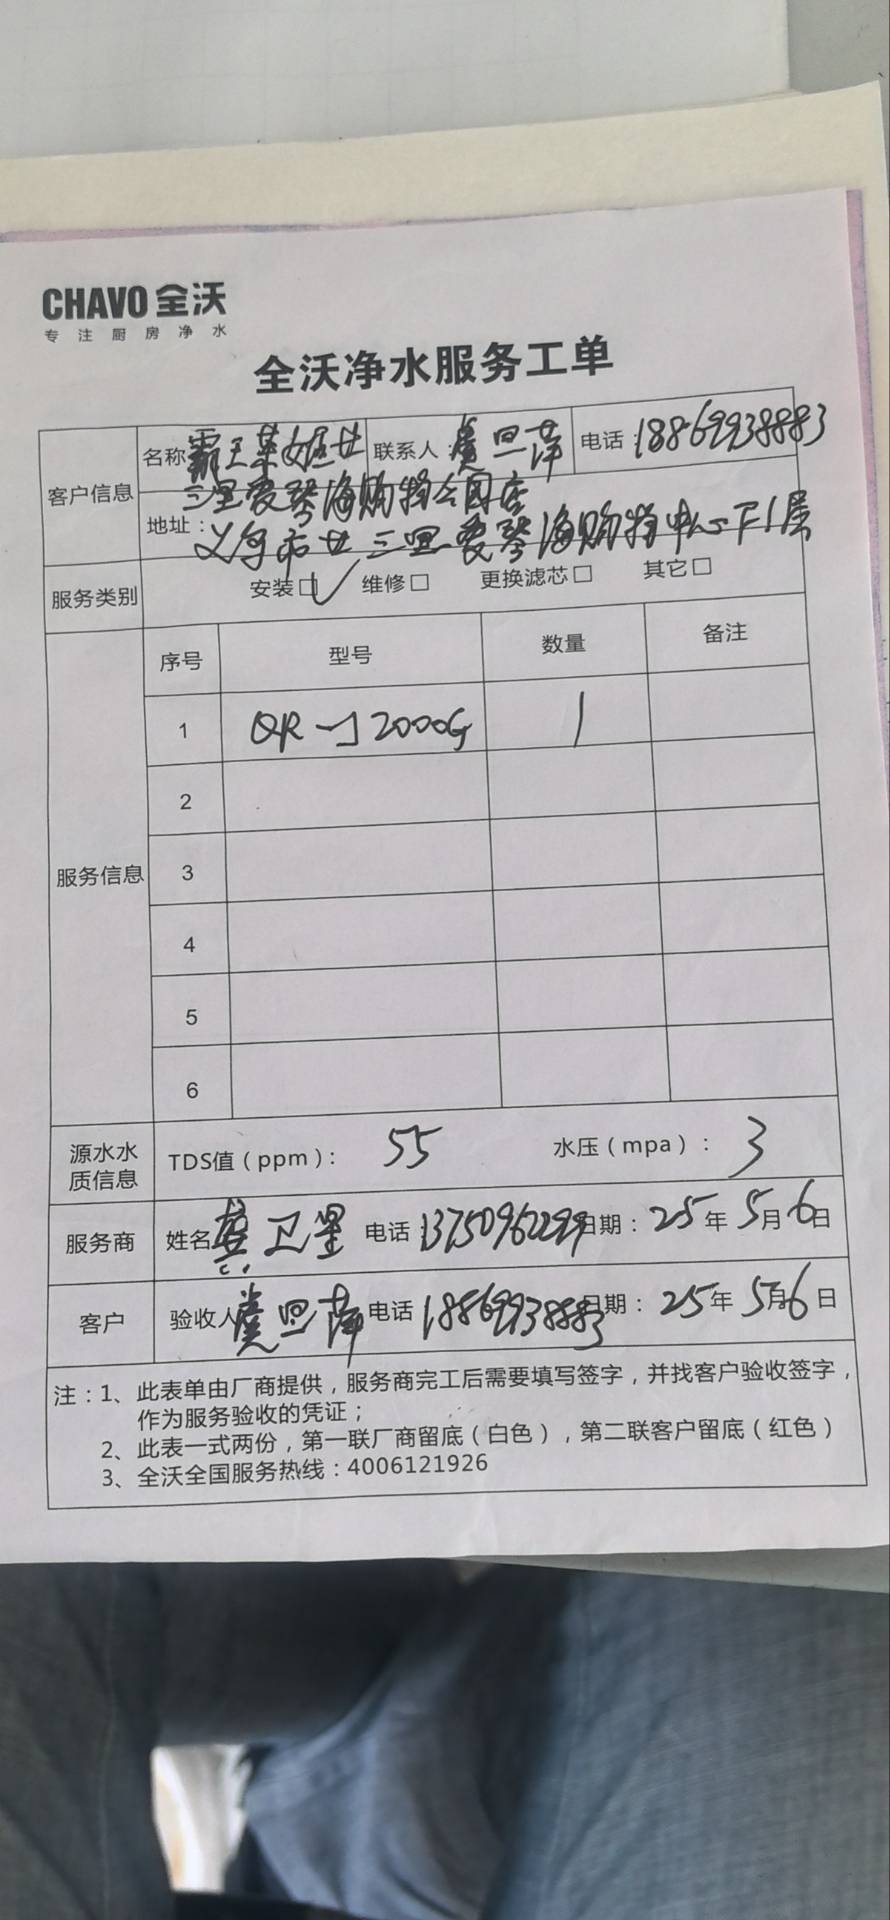 CHAVO 全沃
专注厨房净水
全沃净水服务工单
客户信息
名称 霸王茶姬廿 联系人: 虞旦萍 电话: 18869938883
三里爱琴海购物公园店
地址: 义乌市廿三里爱琴海购物中心下1层
服务类别 安装☑ 维修□ 更换滤芯□ 其它□
服务信息
序号 型号 数量 备注
1 QR-J2000G 1
2
3
4
5
6
源水水质信息 TDS值(ppm): 55 水压(mpa): 3
服务商 姓名 卫星 电话: 13750962299 日期: 25年5月6日
客户 验收人 虞旦萍 电话 18869938883 日期: 25年5月6日
注:1、此表单由厂商提供,服务商完工后需要填写签字,并找客户验收签字,
作为服务验收的凭证;
2、此表一式两份,第一联厂商留底(白色),第二联客户留底(红色)
3、全沃全国服务热线:4006121926